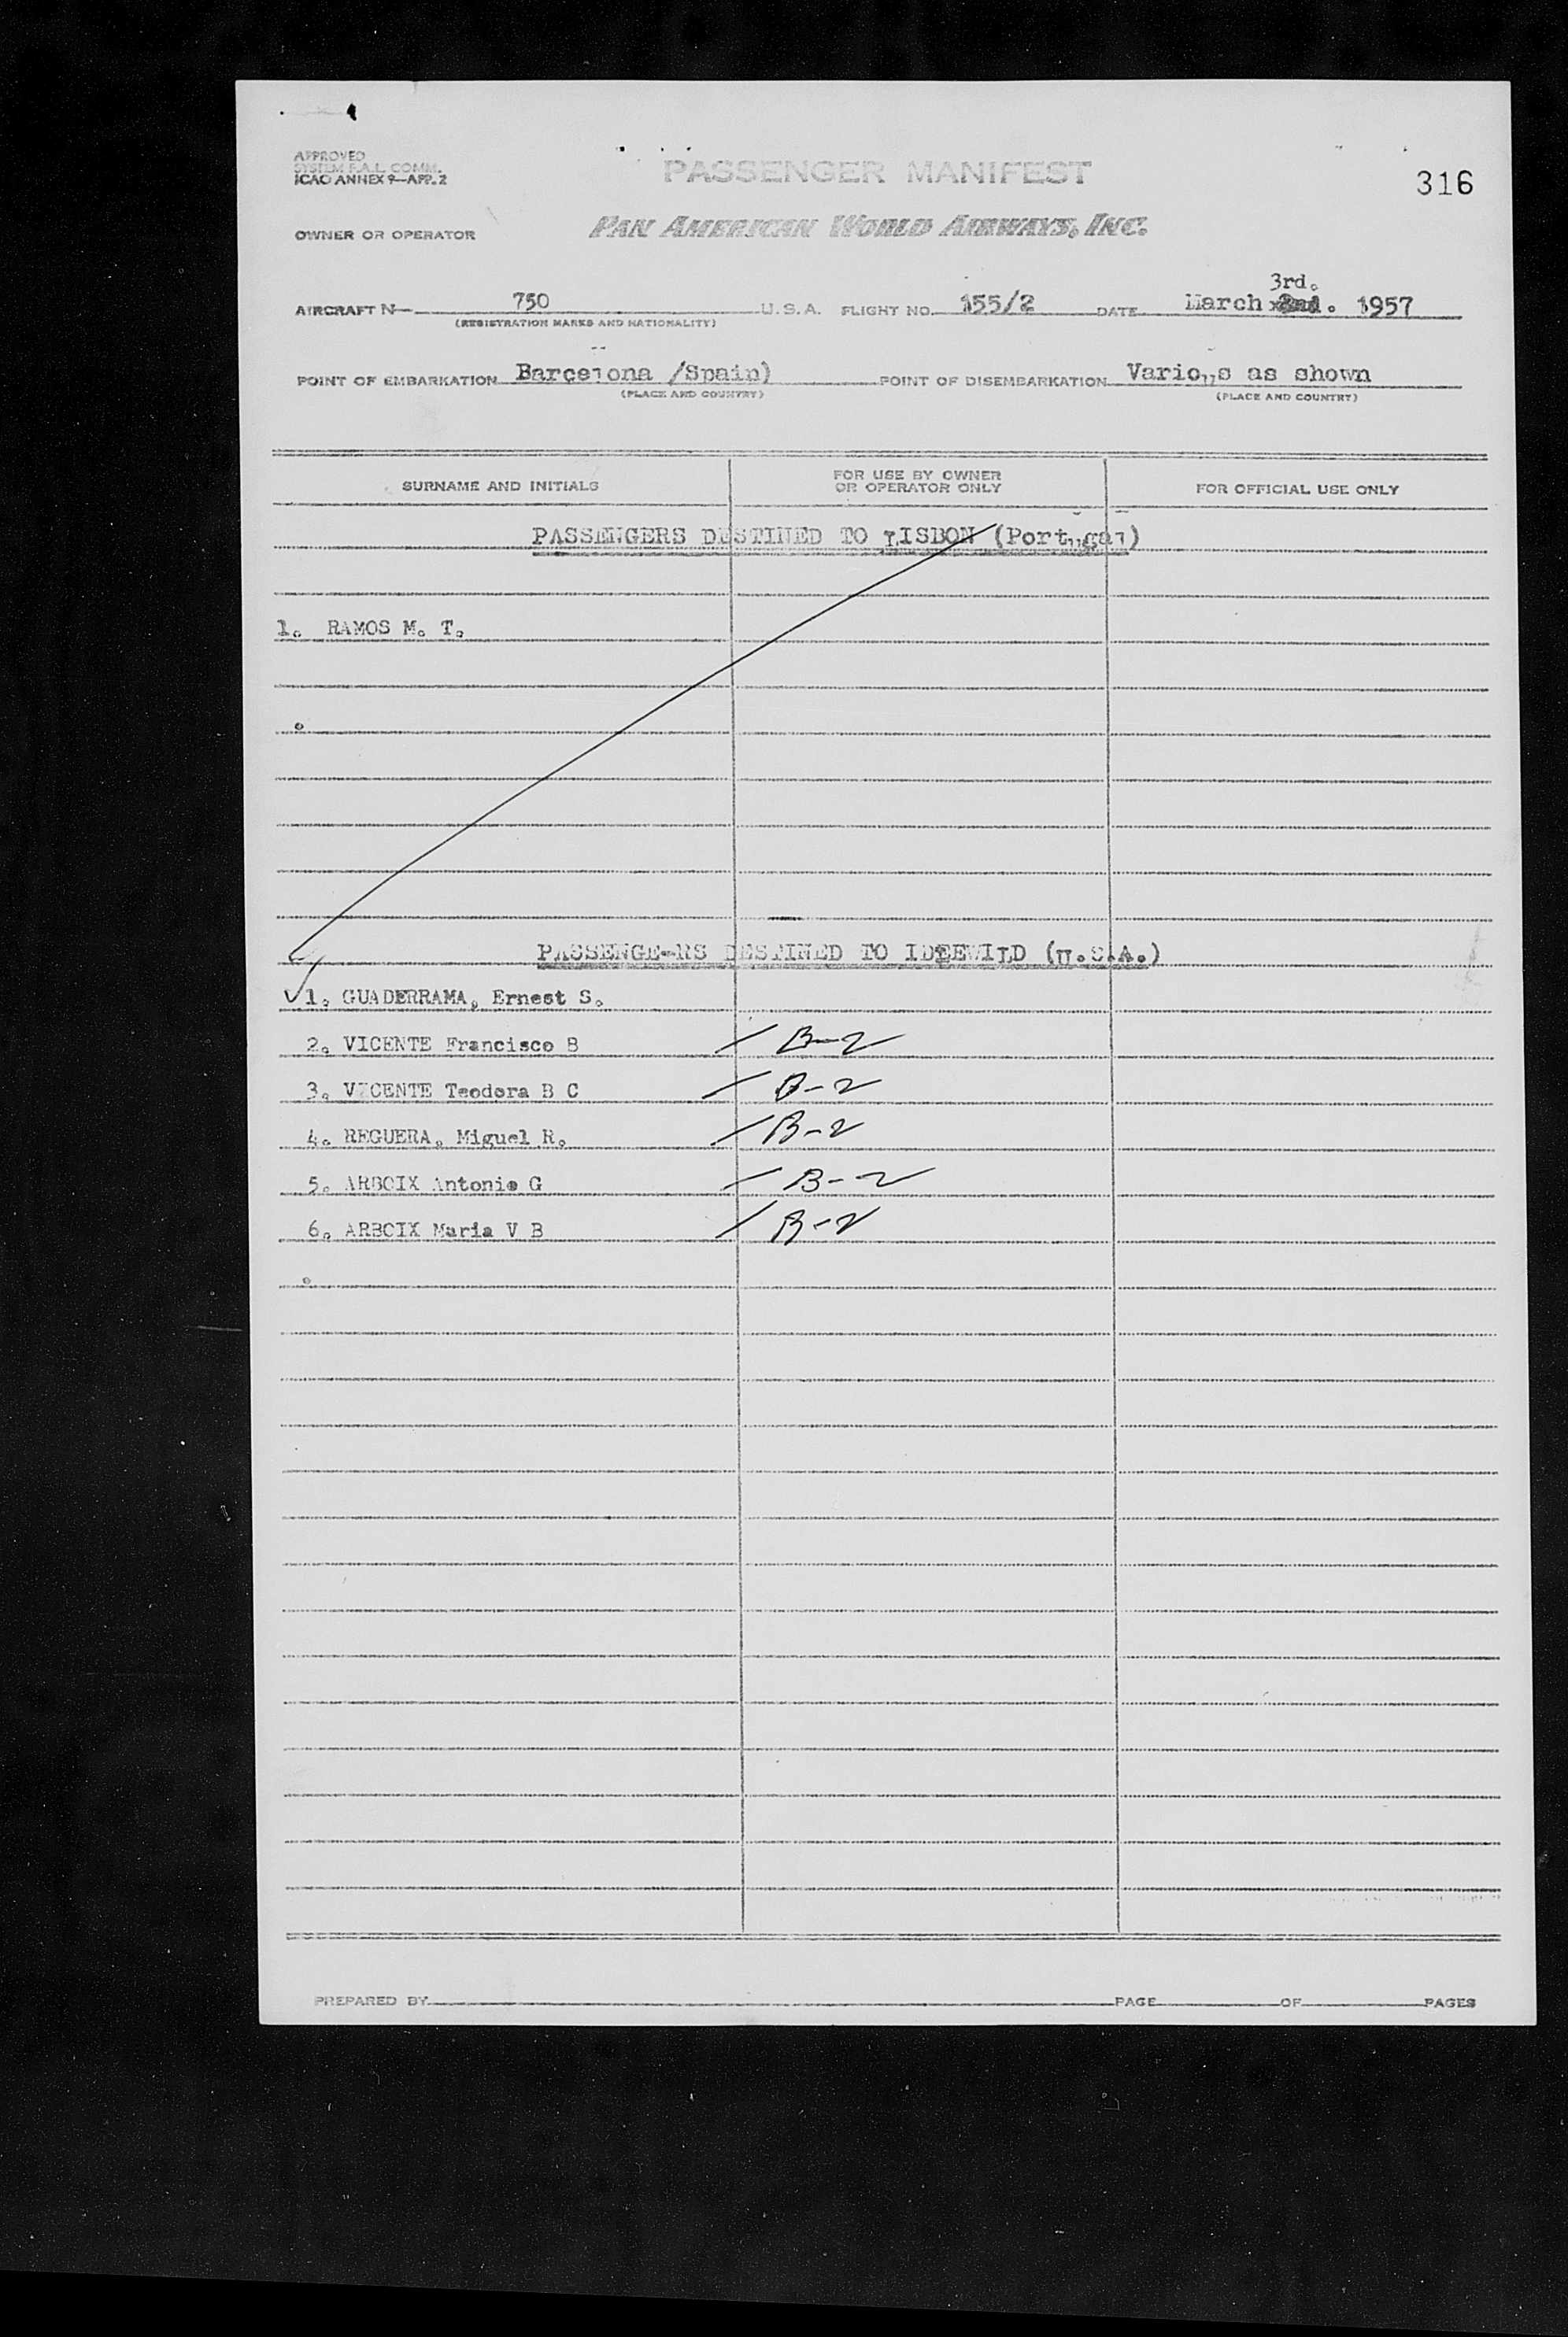 APPROVED
SYSTEM F.A.L. COMM.
ICAO ANNEX 9—APP. 2
PASSENGER MANIFEST
316
OWNER OR OPERATOR
PAN AMERICAN WORLD AIRWAYS, INC.
3rd.
AIRCRAFT N— 750 U.S.A. FLIGHT NO. 155/2 DATE March 2nd. 1957
(REGISTRATION MARKS AND NATIONALITY)
POINT OF EMBARKATION Barcelona /Spain) POINT OF DISEMBARKATION Various as shown
(PLACE AND COUNTRY) (PLACE AND COUNTRY)
SURNAME AND INITIALS
FOR USE BY OWNER
OR OPERATOR ONLY
FOR OFFICIAL USE ONLY
PASSENGERS DESTINED TO LISBON (Portugal)
1. RAMOS M. T.
PASSENGE-RS DESTINED TO IDLEWILD (U.S.A.)
1. GUADERRAMA, Ernest S.
2. VICENTE Francisco B B-2
3. VICENTE Teodora B C B-2
4. REGUERA, Miguel R. B-2
5. ARBOIX Antonio G B-2
6. ARBOIX Maria V B B-2
PREPARED BY PAGE OF PAGES